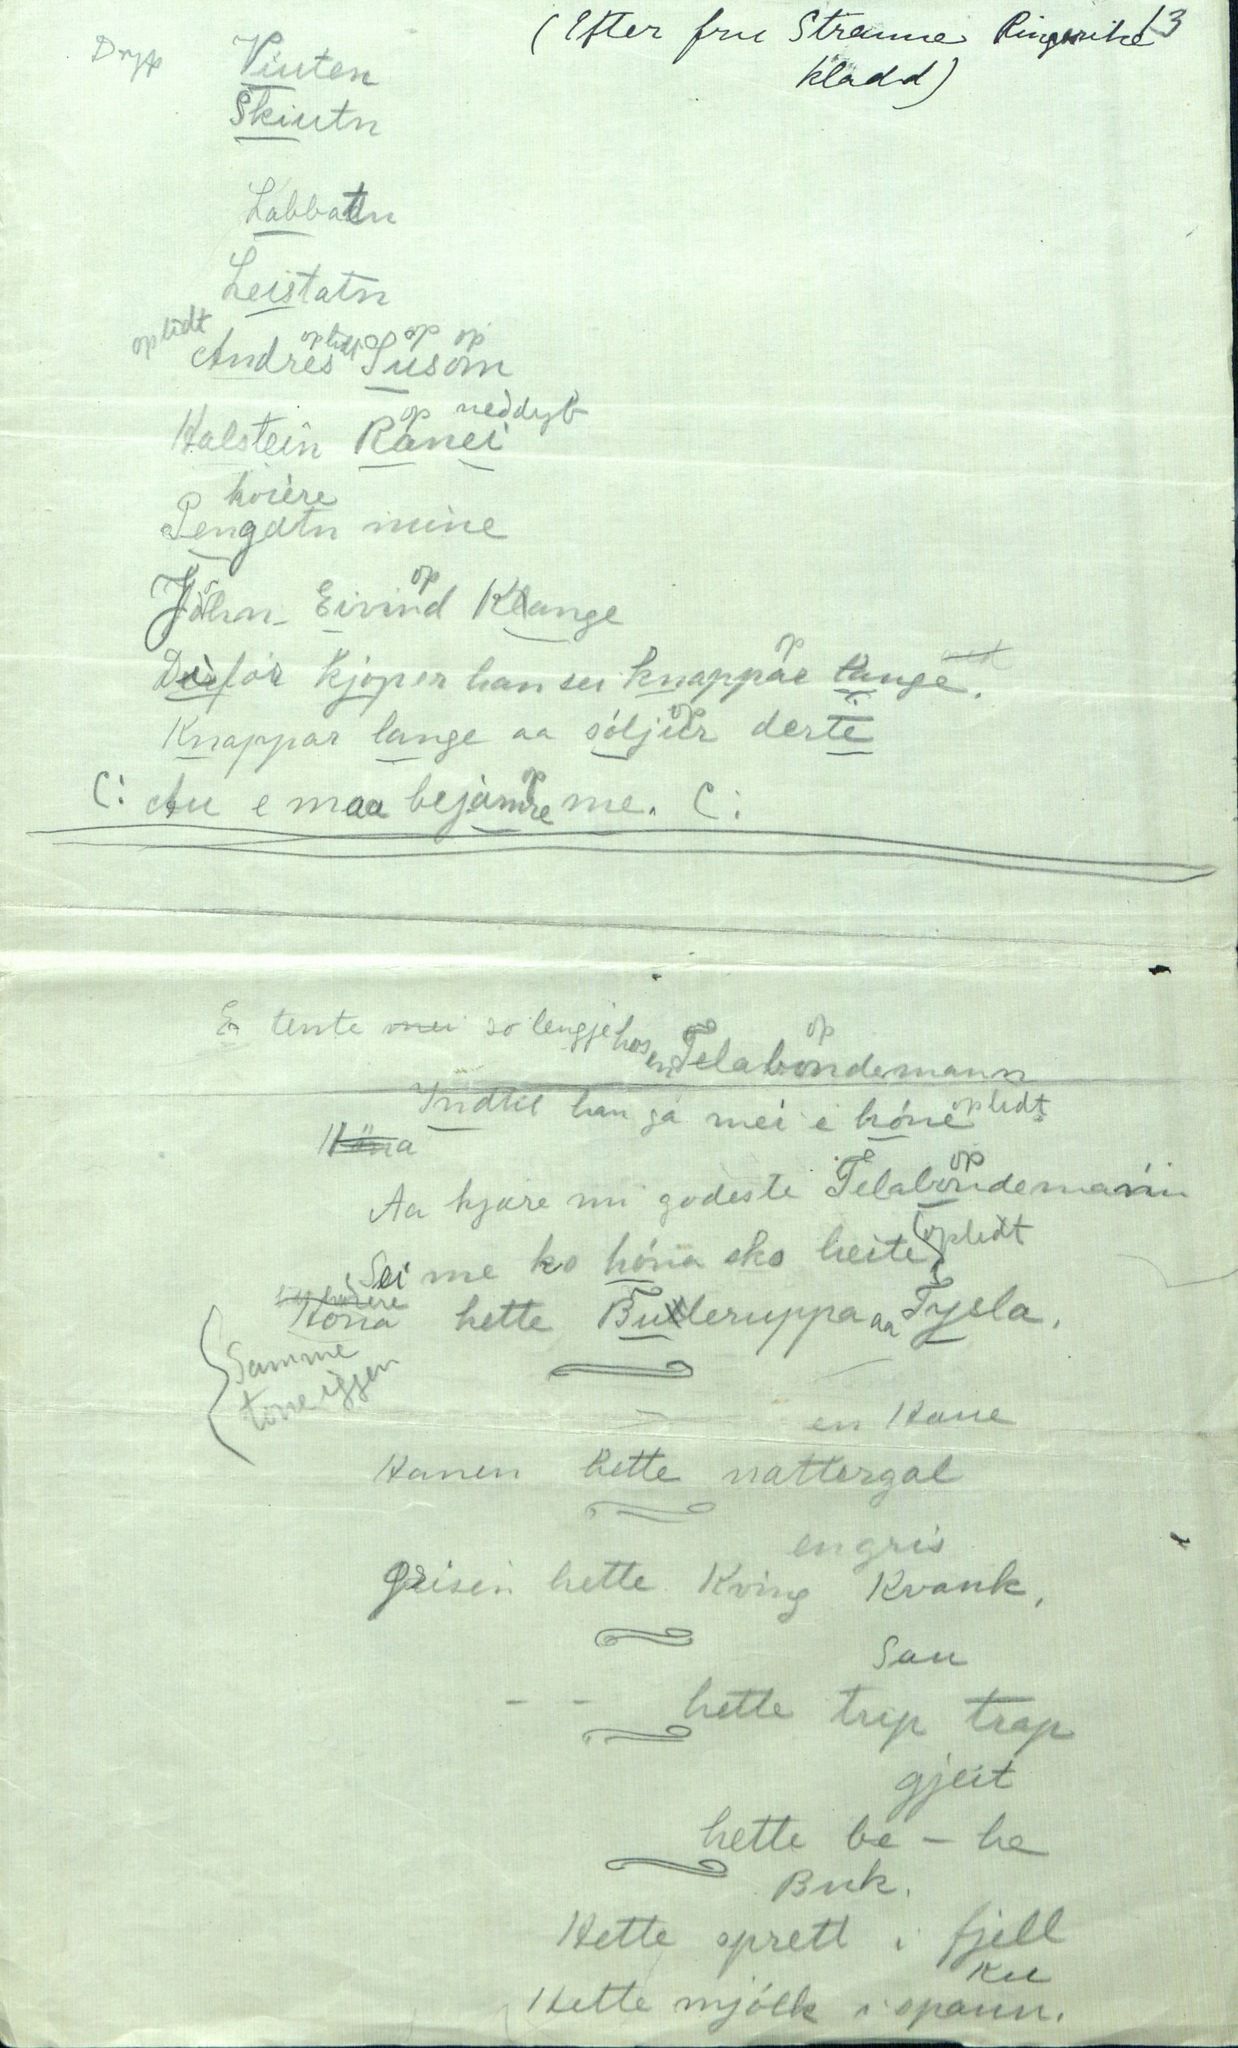 (Efter fru Stranne Ringerike 13
kladd)
Dryp Viuten
Skiutn
Labbatn
Leistatn
oplidt oplidt op op
Andres Susöm
op neddyb
Halstein Ranei
hoiere
Pengatn mine
op
Johan Eivind Klange
op
Derfor kjøper han sei knappar lange.
op
Knappar lange aa söljur derte
op
(: Au e maa bejamre me. (:
E tente mei so lengje hos en Telabondemann
op
Indtil han ga mei e hóne oplidt
Höna
op
Aa kjære mi godeste Telabondemann
Sei me ko hóna sko heite oplidt
Hóna hette Butleruppa aa Tysla.
Samme
tone iggen
en Hane
Hanen hette nattergal
en gris
Grisen hette Kving Kvank,
Sau
- - hette trip trap
gjeit
hette be - he
Buk.
Hette sprett i fjell
Ku
Hette mjólk i spann.